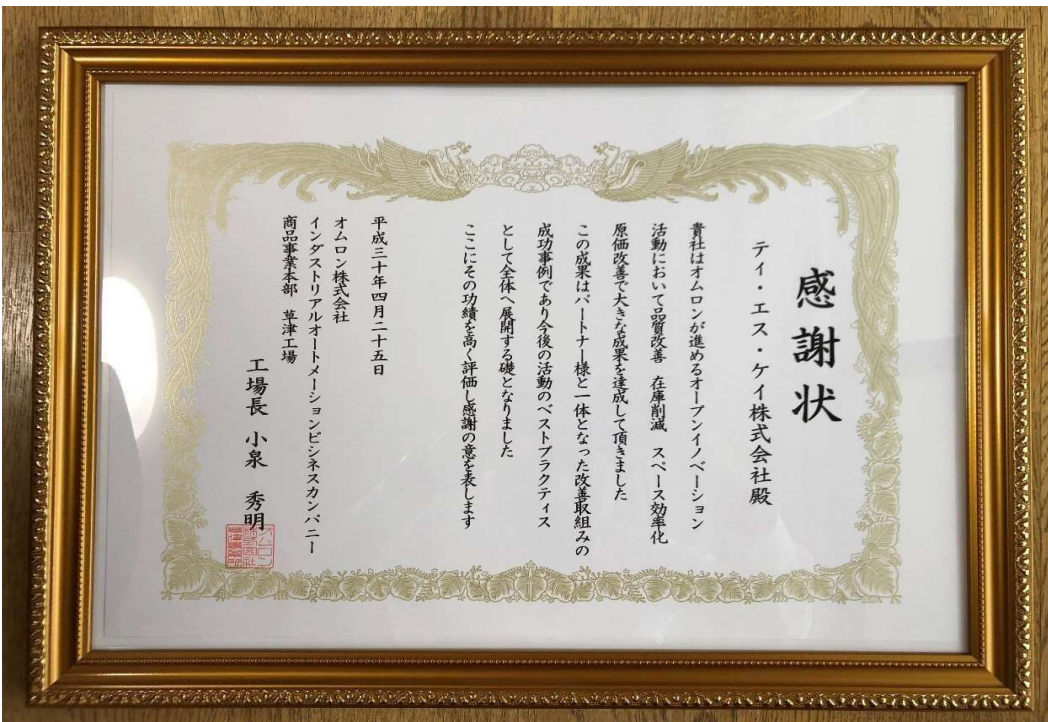 感謝状
ティ・エス・ケイ株式会社殿
貴社はオムロンが進めるオープンイノベーション
活動において品質改善　在庫削減　スペース効率化
原価改善で大きな成果を達成して頂きました
この成果はパートナー様と一体となった改善取組みの
成功事例であり今後の活動のベストプラクティス
として全体へ展開する礎となりました
ここにその功績を高く評価し感謝の意を表します
平成三十年四月二十五日
オムロン株式会社
インダストリアルオートメーションビジネスカンパニー
商品事業本部　草津工場
工場長　小泉　秀明
オムロン
株式会社